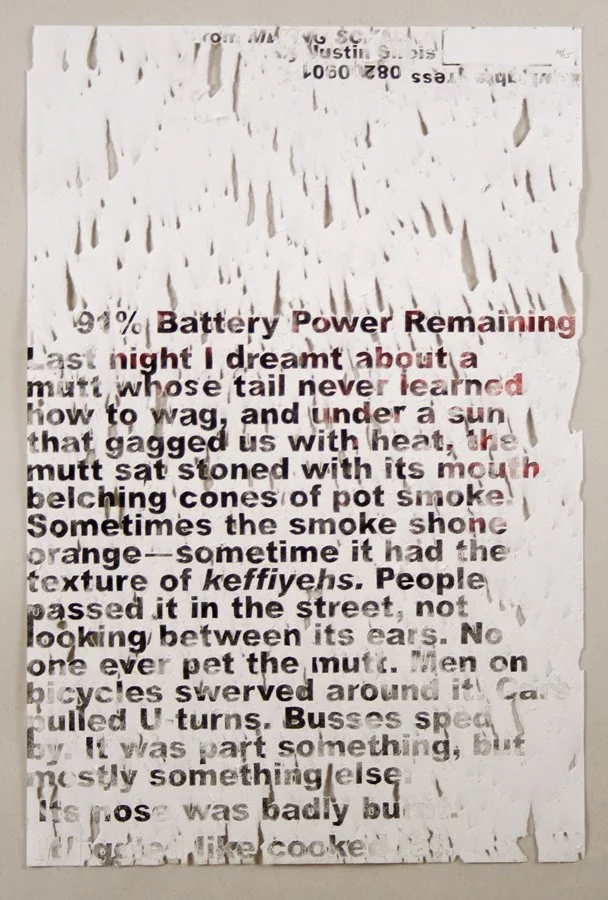 by Justin
91% Battery Power Remaining
Last night I dreamt about a
mutt whose tail never learned
how to wag, and under a sun
that gagged us with heat, the
mutt sat stoned with its mouth
belching cones of pot smoke.
Sometimes the smoke shone
orange—sometime it had the
texture of keffiyehs. People
passed it in the street, not
looking between its ears. No
one ever pet the mutt. Men on
bicycles swerved around it. Cars
pulled U-turns. Busses sped
by. It was part something, but
mostly something else.
Its nose was badly
like